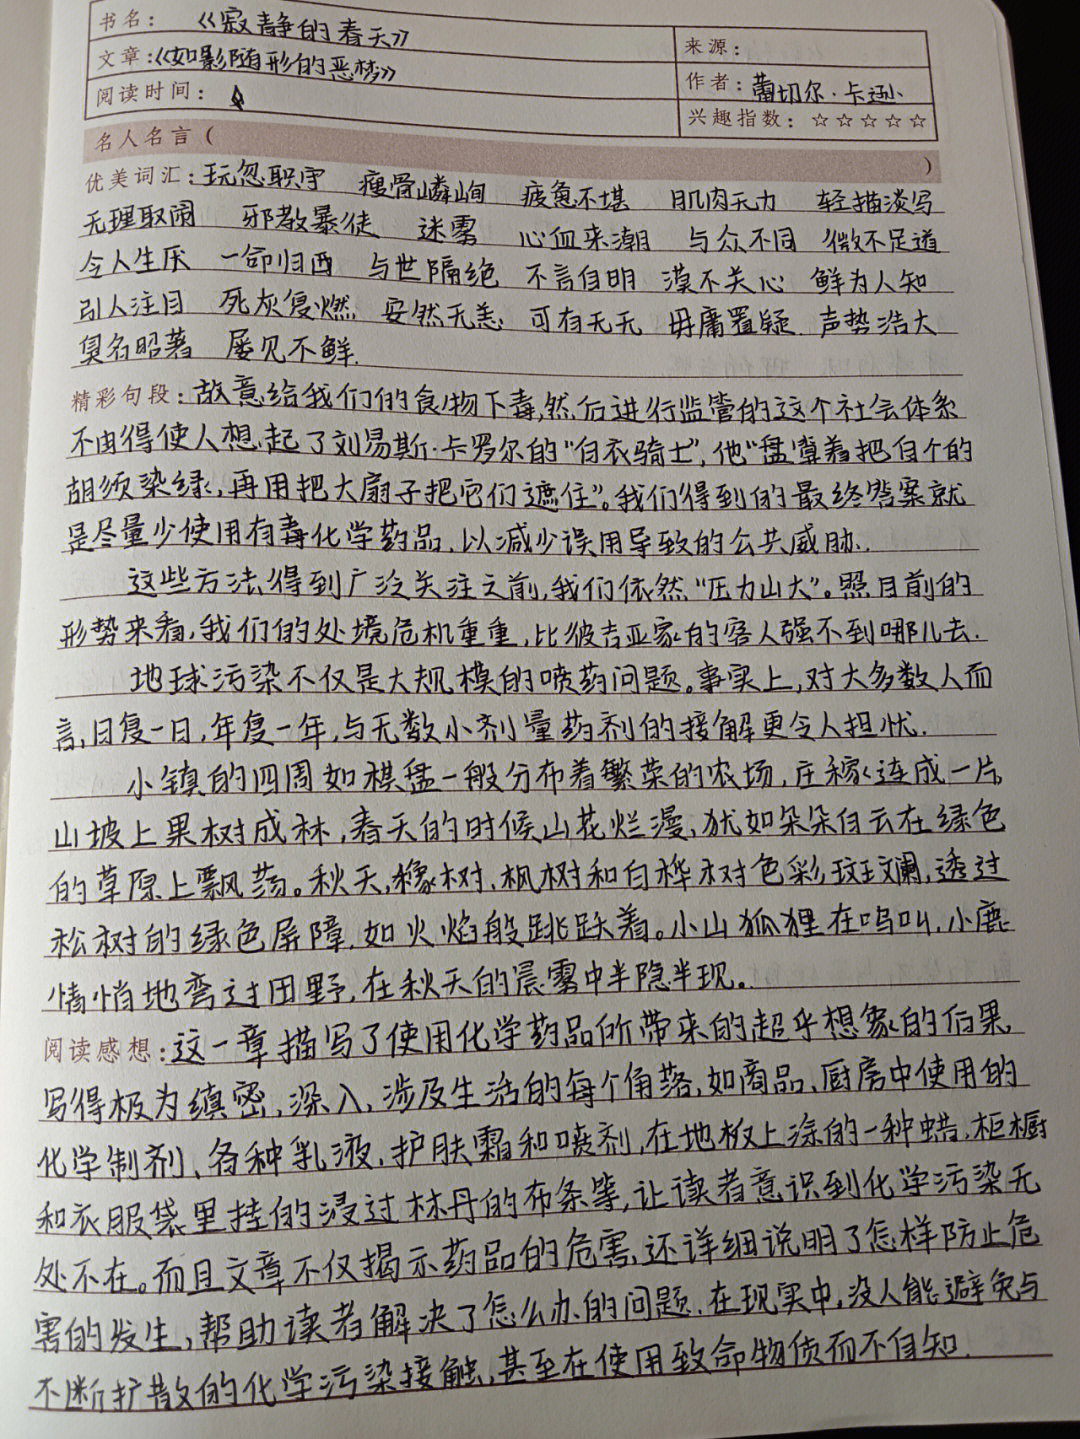 书名： 《寂静的春天》
来源：
文章：《如影随形的恶梦》
作者：蕾切尔·卡逊
阅读时间：
兴趣指数：☆☆☆☆☆
名人名言（ ）
优美词汇：玩忽职守 瘦骨嶙峋 疲惫不堪 肌肉无力 轻描淡写
无理取闹 邪教暴徒 迷雾 心血来潮 与众不同 微不足道
令人生厌 一命归西 与世隔绝 不言自明 漠不关心 鲜为人知
引人注目 死灰复燃 安然无恙 可有无无 毋庸置疑 声势浩大
臭名昭著 屡见不鲜.
精彩句段：故意给我们的食物下毒,然后进行监管的这个社会体系
不由得使人想起了刘易斯·卡罗尔的“白衣骑士”,他“盘算着把自个的
胡须染绿,再用把大扇子把它们遮住”。我们得到的最终答案就
是尽量少使用有毒化学药品,以减少误用导致的公共威胁.
这些方法得到广泛关注之前,我们依然“压力山大”。照目前的
形势来看,我们的处境危机重重,比彼吉亚家的客人强不到哪儿去.
地球污染不仅是大规模的喷药问题。事实上,对大多数人而
言,日复一日,年复一年,与无数小剂量药剂的接解更令人担忧.
小镇的四周如棋盘一般分布着繁荣的农场,庄稼连成一片,
山坡上果树成林,春天的时候,山花烂漫,犹如朵朵白云在绿色
的草原上飘荡。秋天,橡树、枫树和白桦树色彩斑斓,透过
松树的绿色屏障,如火焰般跳跃着。小山狐狸在鸣叫,小鹿
悄悄地弯过田野,在秋天的晨雾中半隐半现。
阅读感想：这一章描写了使用化学药品所带来的超乎想象的后果,
写得极为缜密,深入,涉及生活的每个角落,如商品,厨房中使用的
化学制剂、各种乳液,护肤霜和喷剂,在地板上涂的一种蜡,柜橱
和衣服袋里挂的浸过林丹的布条等,让读者意识到化学污染无
处不在。而且文章不仅揭示药品的危害,还详细说明了怎样防止危
害的发生,帮助读者解决了怎么办的问题.在现实中,没人能避免与
不断扩散的化学污染接触,甚至在使用致命物质而不自知.